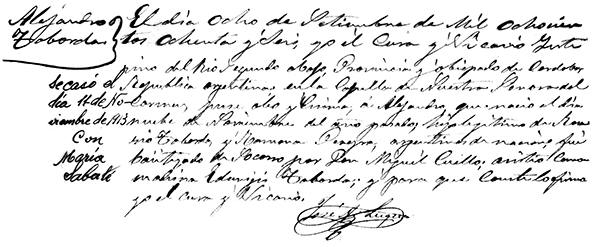 Alejandro
Taborda
El día ocho de Setiembre de Mil ochocien
tos ochenta y Seis, yo el Cura y Vicario Inte
rino del Río Segundo Abajo, Provincia y obispado de Cordoba,
Republica argentina en la Capilla de Nuestra Senora del
Carmen, puse oleo y Crisma, á Alejandro, que nacio el dia
nueve de Noviembre del año pasado, hijo legitimo de
rio Taborda y Ramona Pereyra, argentinos de nacion, fué
bautizado de Socorro por Don Miguel Cuello; asistió Como
madrina Eduvijis Taborda; y para que Conste lo firmo
yo el Cura y Vicario.
José Luque
Se casó el
día 14 de No
viembre de 1913
Con
María
Sabate